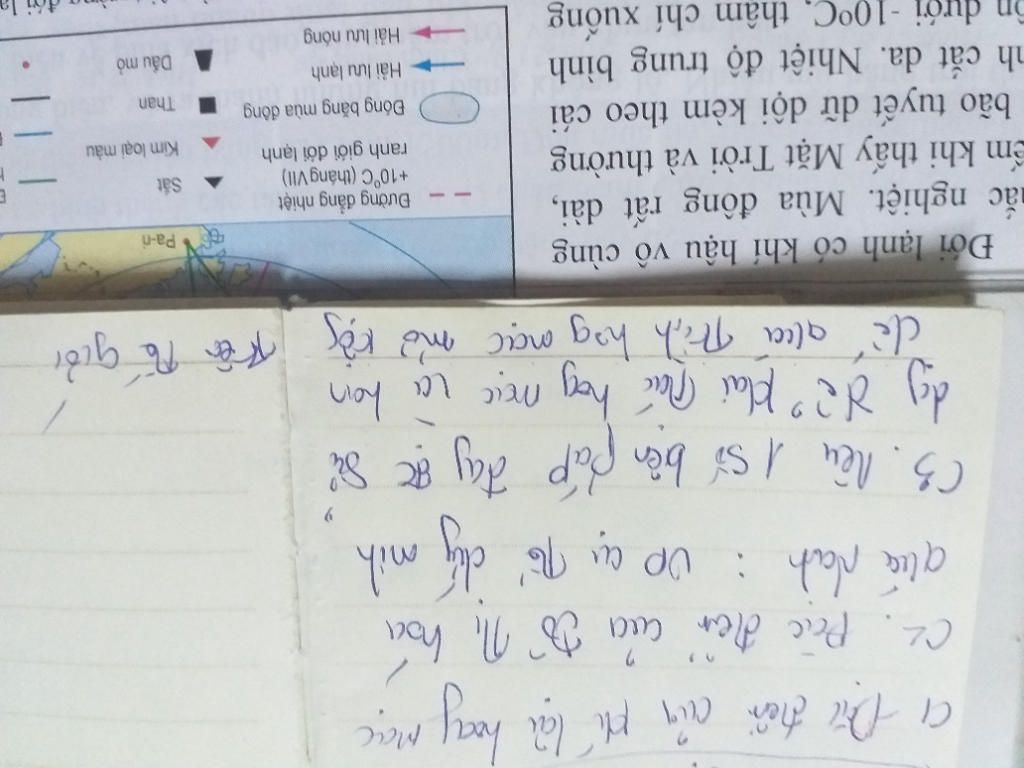 C1 Đặc điểm của kh hậu hoang mạc
C2. Đặc điểm của Đô Thị hoá
quá nhanh : VD cụ Tể chứg minh
C3. Nêu 1 số biện páp đag đc sử
dụg để khai Thác hoag mạc và hạn
chế quá Trình hoag mạc mở rộg
Trên Tế giới
Đới lạnh có khí hậu vô cùng
ắc nghiệt. Mùa đông rất dài,
ếm khi thấy Mặt Trời và thường
bão tuyết dữ dội kèm theo cái
nh cắt da. Nhiệt độ trung bình
ôn dưới -10°C, thậm chí xuống
Pa-ri
Đường đẳng nhiệt
+10°C (tháng VII)
ranh giới đới lạnh
Đóng băng mùa đông
Hải lưu lạnh
Hải lưu nóng
Sắt
Kim loại màu
Than
Dầu mỏ